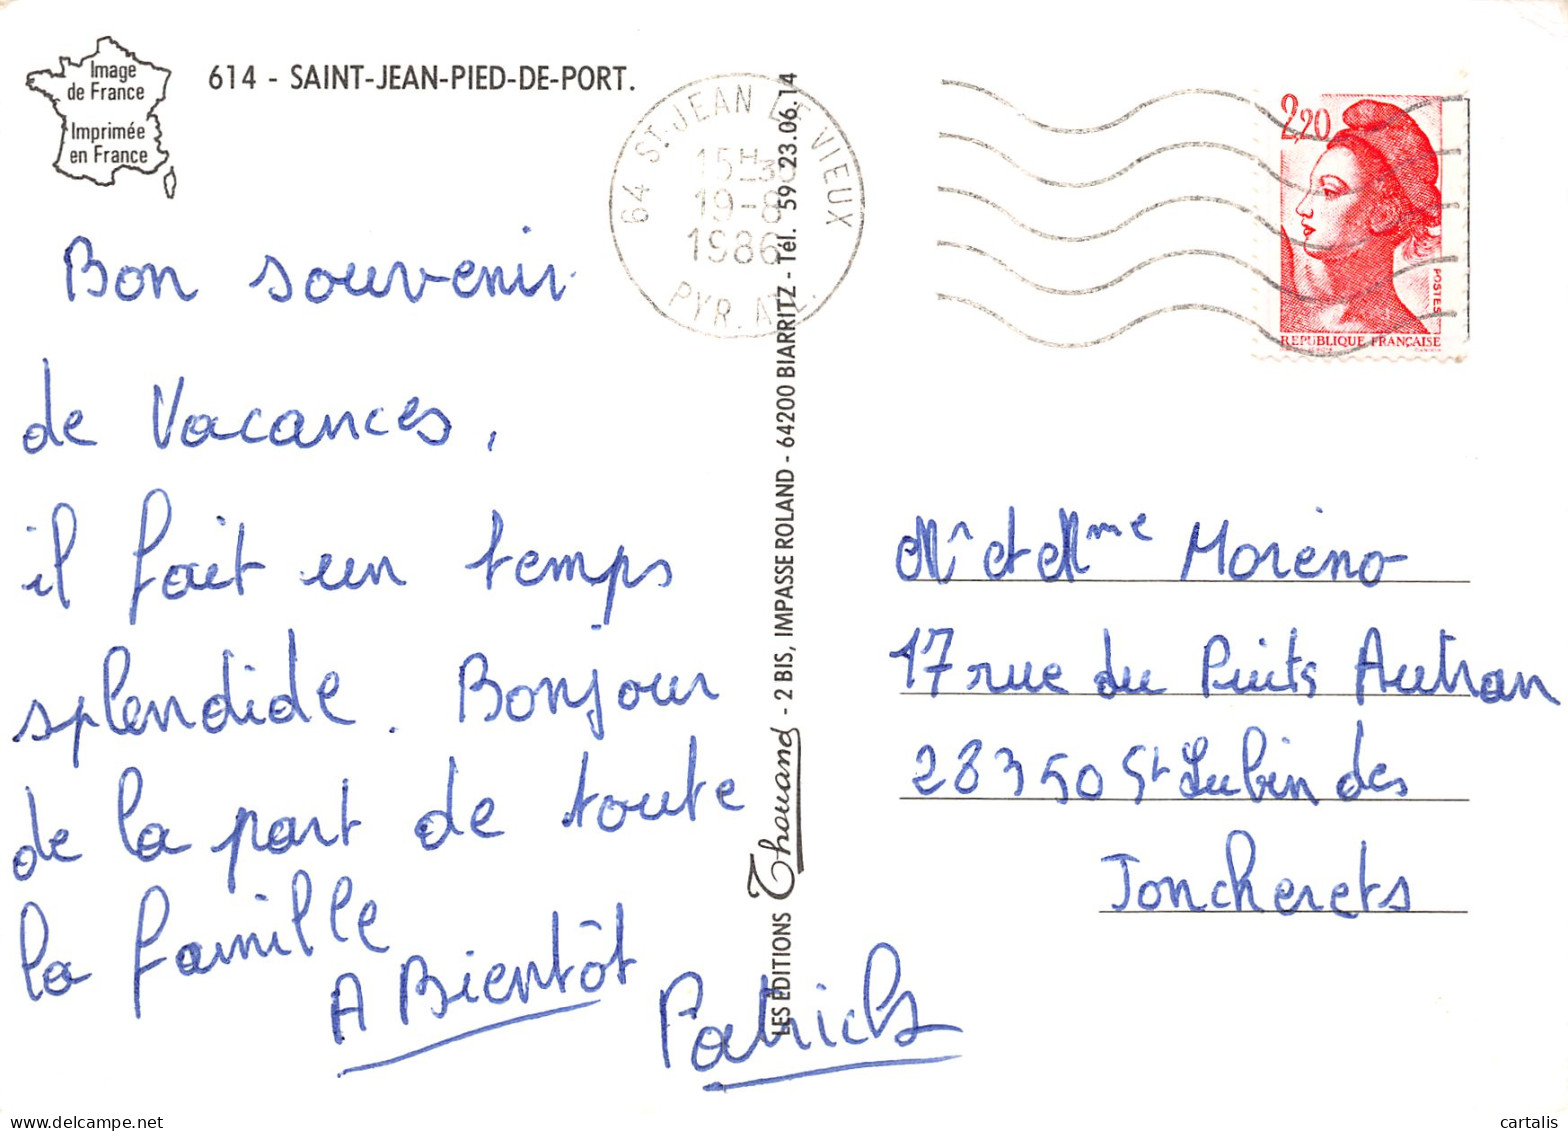 Image
de France
Imprimée
en France
614 - SAINT-JEAN-PIED-DE-PORT.
64 ST-JEAN LE VIEUX
15H30
19-8
1986
PYR. ATL.
2,20
POSTES
REPUBLIQUE FRANÇAISE
Bon souvenir
de Vacances,
il fait un temps
splendide. Bonjour
de la part de toute
la famille
A Bientôt
LES EDITIONS Thouand - 2 BIS, IMPASSE ROLAND - 64200 BIARRITZ - Tél. 59 23.06.14
Mr et Mme Moreno
17 rue du Puits Autran
28350 St Lubin des
Joncherets
cartalis